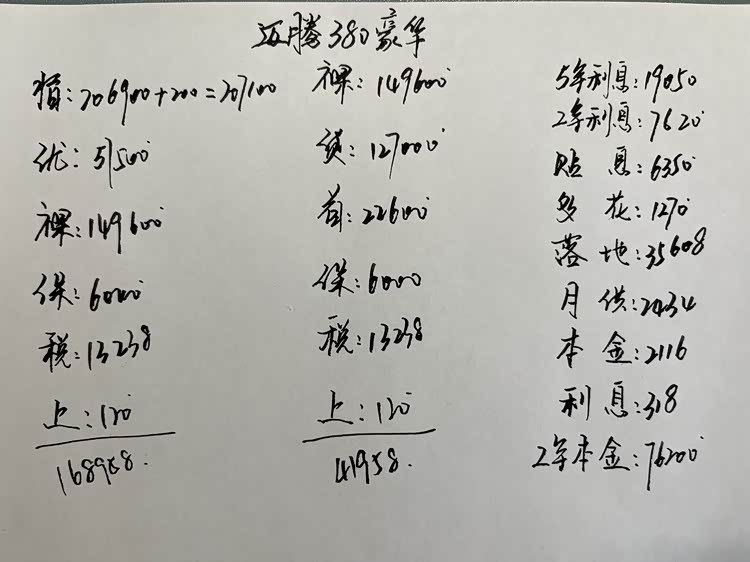 迈腾380豪华
指:206900+200=207100
优:57500
裸:149600
保:6000
税:13238
上:120
168958.
裸:149600
贷:127000
首:22600
保:6000
税:13238
上:120
41958.
5年利息:19050
2年利息:7620
贴息:6350
多花:1270
落地:35608
月供:2434
本金:2116
利息:318
2年本金:76200